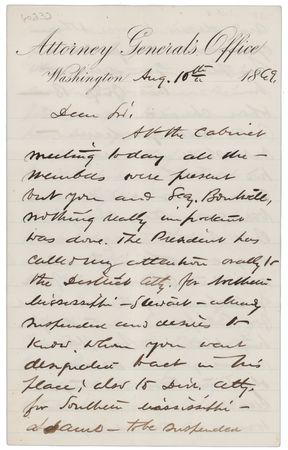 Attorney General's Office
Washington Aug. 10th 1869
Dear Sir,
At the Cabinet
meeting today all the
members were present
but you and Secy. Boutwell,
nothing really important
was done. The President has
called my attention orally to
the District Atty. for Northern
Mississippi - Stewart - already
suspended and desires to
know whom you want
designated to act in his
place; also to Dist. Atty.
for Southern Mississippi -
Adams - to be suspended